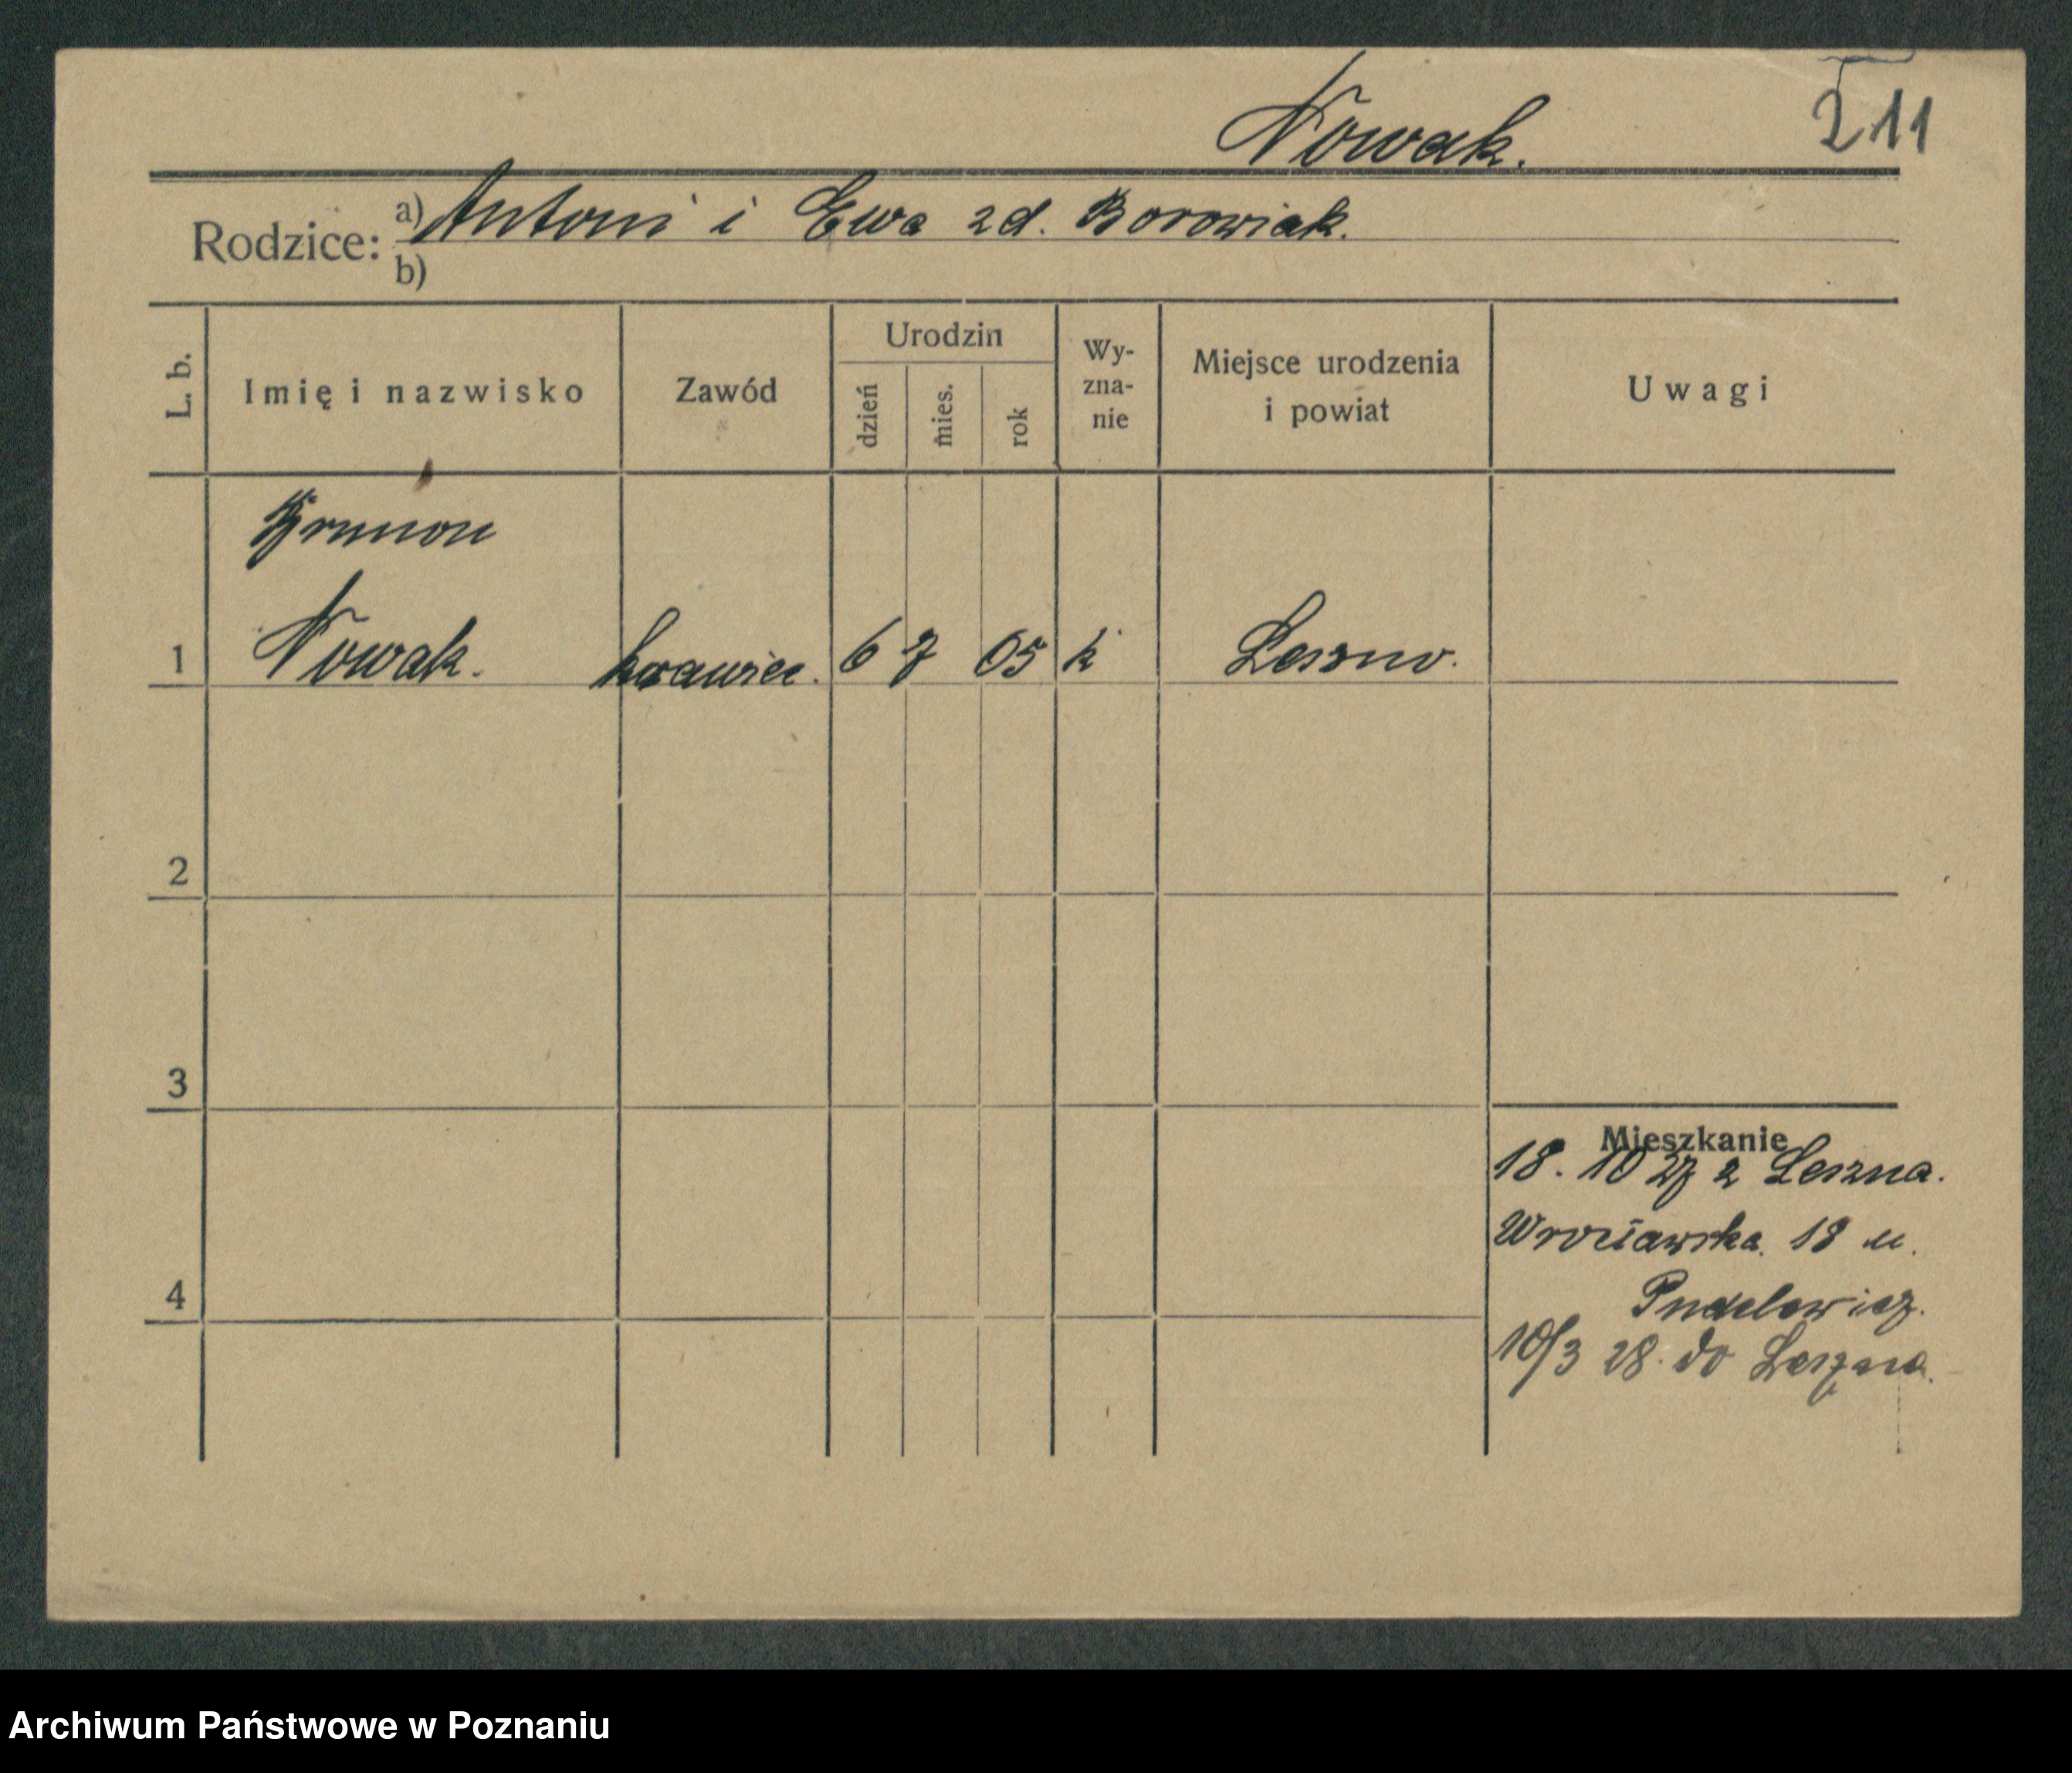 Nowak.
211
Rodzice: a) Antoni i Ewa zd. Borowiak.
b)
L. b. Imię i nazwisko Zawód Urodzin dzień mies. rok Wy-zna-nie Miejsce urodzenia i powiat Uwagi
Brunon
1 Nowak. krawiec. 6 7 05 k Leszno.
2
3
Mieszkanie
18. 10 27 z Leszna.
Wrocławska 18 u.
4
10/3 28. do Leszna.
Archiwum Państwowe w Poznaniu